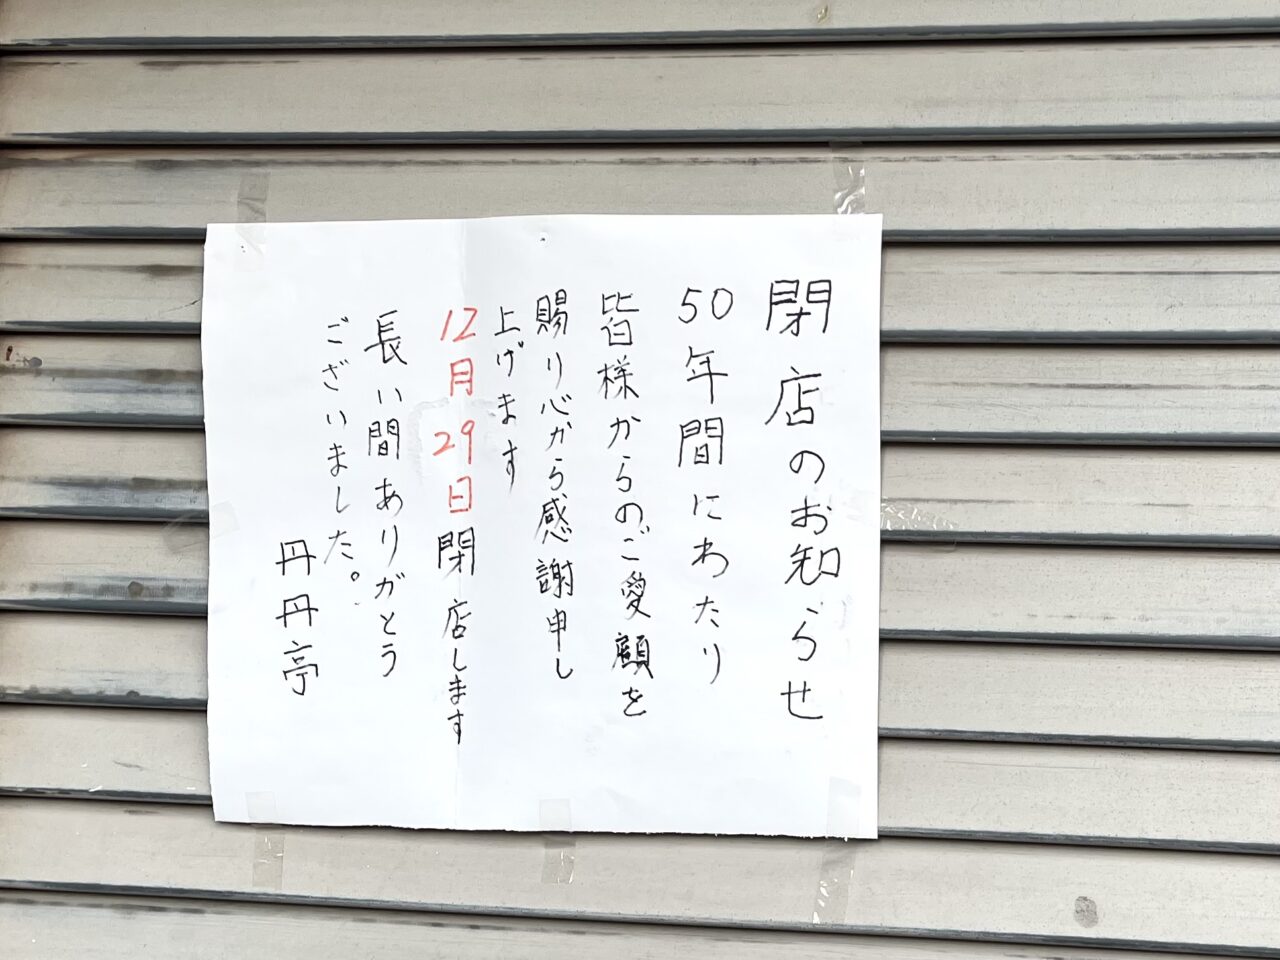 閉店のお知らせ
50年間にわたり
皆様からのご愛顧を
賜り心から感謝申し
上げます
12月29日閉店します
長い間ありがとう
ございました。
丹丹亭